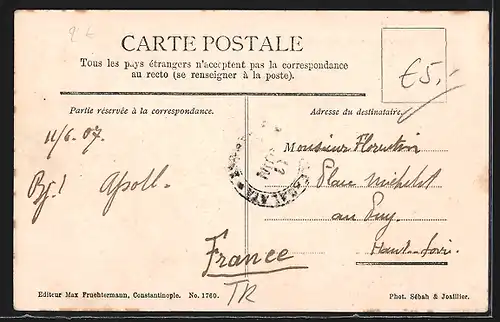 2 €
CARTE POSTALE
Tous les pays étrangers n'acceptent pas la correspondance
au recto (se renseigner à la poste).
€5,-
Partie réservée à la correspondance.
Adresse du destinataire.
11/6.07.
Monsieur Florentin
Place Michelet
au Puy.
Haute-Loire.
France
GALATA
JUIN
TR
Editeur Max Fruchtermann, Constantinople. No. 1760.
Phot. Sébah & Joaillier.